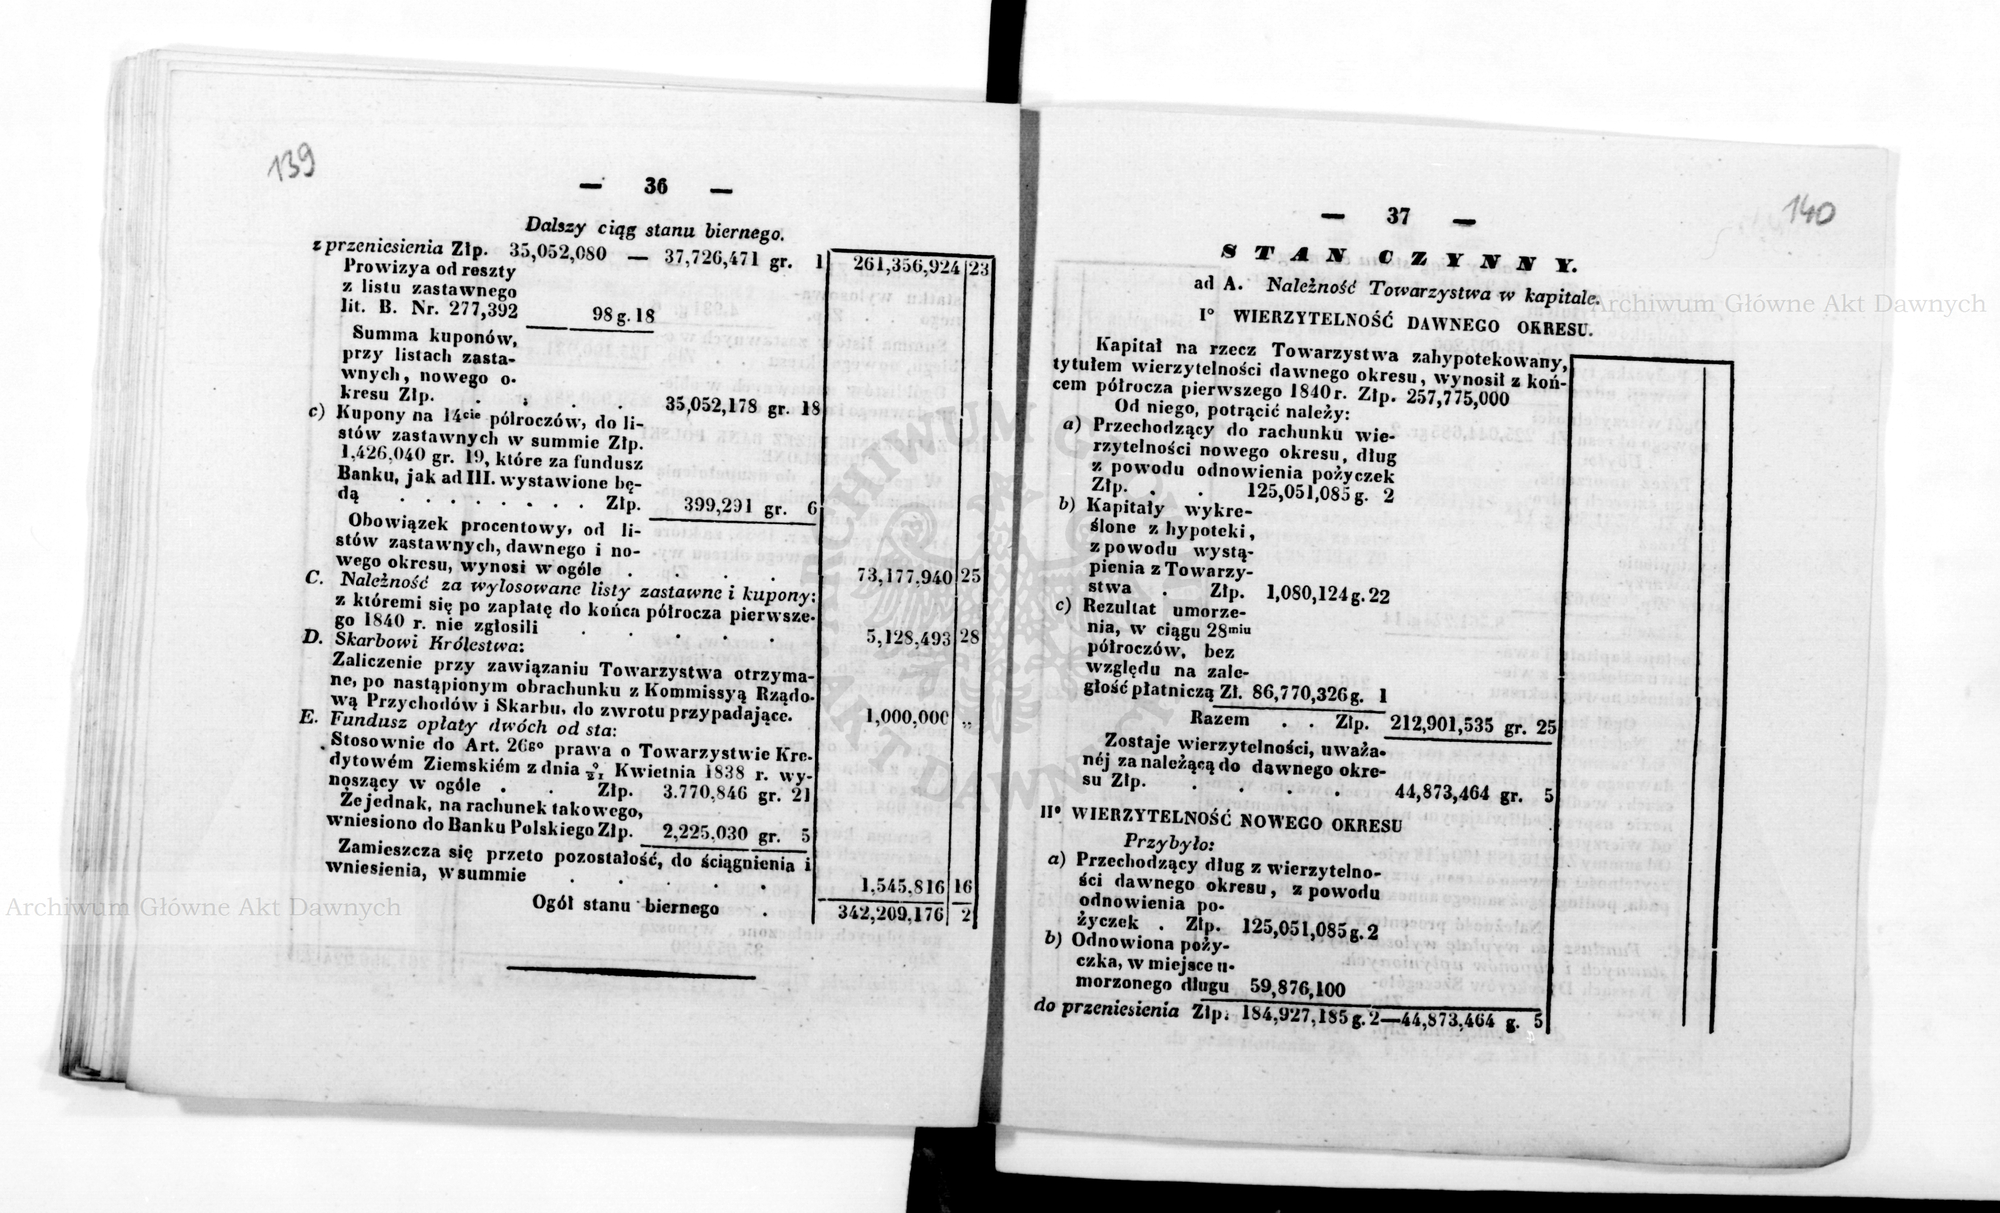 139
— 36 —
Dalszy ciąg stanu biernego.
z przeniesienia Złp. 35,052,080 — 37,726,471 gr. 1 261,356,924 23
Prowizya od reszty
z listu zastawnego
lit. B. Nr. 277,392 98 g. 18
Summa kuponów,
przy listach zasta-
wnych, nowego o-
kresu Złp. . . . . 35,052,178 gr. 18
c) Kupony na 14cie półroczów, do li-
stów zastawnych w summie Złp.
1,426,040 gr. 19, które za fundusz
Banku, jak ad III. wystawione bę-
dą . . . . . . Złp. 399,291 gr. 6
Obowiązek procentowy, od li-
stów zastawnych, dawnego i no-
wego okresu, wynosi w ogóle . . . . 73,177,940 25
C. Należność za wylosowane listy zastawne i kupony:
z któremi się po zapłatę do końca półrocza pierwsze-
go 1840 r. nie zgłosili . . . . . 5,128,493 28
D. Skarbowi Królestwa:
Zaliczenie przy zawiązaniu Towarzystwa otrzyma-
ne, po nastąpionym obrachunku z Kommissyą Rządo-
wą Przychodów i Skarbu, do zwrotu przypadające. 1,000,000 „
E. Fundusz opłaty dwóch od sta:
Stosownie do Art. 26go prawa o Towarzystwie Kre-
dytowém Ziemskiém z dnia 9/21 Kwietnia 1838 r. wy-
noszący w ogóle . . Złp. 3.770,846 gr. 21
Że jednak, na rachunek takowego,
wniesiono do Banku Polskiego Złp. 2,225,030 gr. 5
Zamieszcza się przeto pozostałość, do ściągnienia i
wniesienia, w summie . . . . . 1,545,816 16
Ogół stanu biernego . 342,209,176 2
140
— 37 —
STAN CZYNNY.
ad A. Należność Towarzystwa w kapitale.
I° WIERZYTELNOŚĆ DAWNEGO OKRESU.
Kapitał na rzecz Towarzystwa zahypotekowany,
tytułem wierzytelności dawnego okresu, wynosił z koń-
cem półrocza pierwszego 1840 r. Złp. 257,775,000
Od niego, potrącić należy:
a) Przechodzący do rachunku wie-
rzytelności nowego okresu, dług
z powodu odnowienia pożyczek
Złp. . . 125,051,085 g. 2
b) Kapitały wykre-
ślone z hypoteki,
z powodu wystą-
pienia z Towarzy-
stwa . Złp. 1,080,124 g. 22
c) Rezultat umorze-
nia, w ciągu 28miu
półroczów, bez
względu na zale-
głość płatniczą Zł. 86,770,326 g. 1
Razem . . Złp. 212,901,535 gr. 25
Zostaje wierzytelności, uważa-
néj za należącą do dawnego okre-
su Złp. . . . . 44,873,464 gr. 5
II° WIERZYTELNOŚĆ NOWEGO OKRESU
Przybyło:
a) Przechodzący dług z wierzytelno-
ści dawnego okresu, z powodu
odnowienia po-
życzek . Złp. 125,051,085 g. 2
b) Odnowiona poży-
czka, w miejsce u-
morzonego długu 59,876,100
do przeniesienia Złp. 184,927,185 g. 2—44,873,464 g. 5
Archiwum Główne Akt Dawnych
Archiwum Główne Akt Dawnych
ARCHIWUM GŁÓWNE AKT DAWNYCH